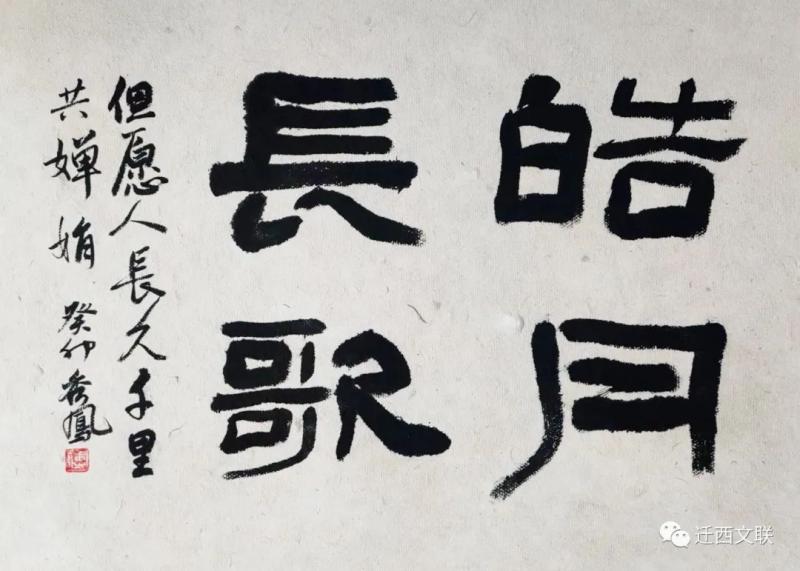 皓月
長歌
但愿人長久千里
共婵娟 癸卯秀鳳
迁西文联